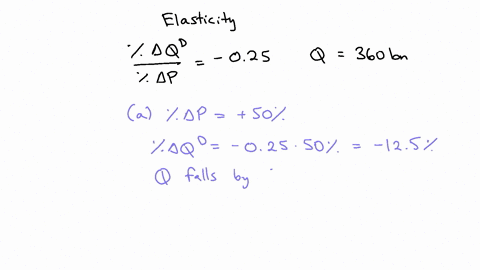 Elasticity
%ΔQ^D / %ΔP = -0.25 Q = 360 bn
(a) %ΔP = +50%
%ΔQ^D = -0.25 · 50% = -12.5%
Q falls by